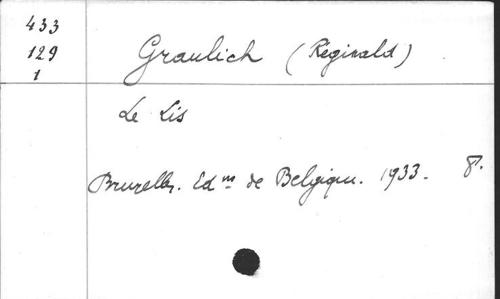 433
129
1
Graulich (Réginald)
Le Lis
Bruxelles. Edns de Belgique. 1933. 8°.